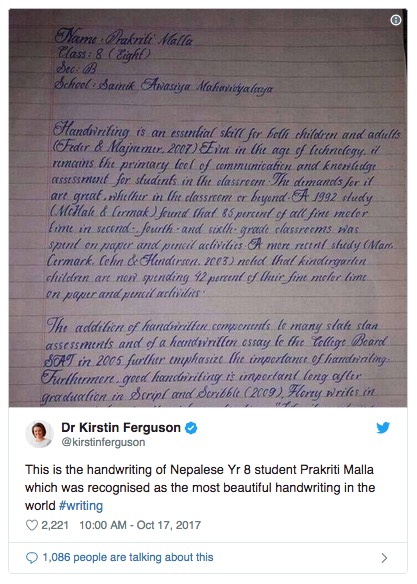 Name : Prakriti Malla
Class : 8 (Eight)
Sec : B
School : Sainik Awasiya Mahavidyalaya
Handwriting is an essential skill for both children and adults
(Feder & Majnemer, 2007) Even in the age of technology, it
remains the primary tool of communication and knowledge
assessment for students in the classroom. The demands for it
are great, whether in the classroom or beyond. A 1992 study
(McHale & Cermak) found that 85 percent of all fine motor
time in second-, fourth- and sixth- grade classrooms was
spent on paper and pencil activities. A more recent study (Marr,
Cermark, Cohn & Henderson, 2003) noted that kindergarten
children are now spending 42 percent of their fine motor time
on paper and pencil activities.
The addition of handwritten components to many state stan
assessments and of a handwritten essay to the College Board
SAT in 2005 further emphasize the importance of handwriting.
Furthermore, good handwriting is important long after
graduation in Script and Scribble (2009), Florey writes in
Dr Kirstin Ferguson
@kirstinferguson
This is the handwriting of Nepalese Yr 8 student Prakriti Malla
which was recognised as the most beautiful handwriting in the
world #writing
2,221 10:00 AM - Oct 17, 2017
1,086 people are talking about this